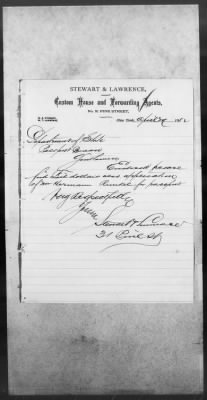 STEWART & LAWRENCE,
Custom House and Forwarding Agents,
New York, April 29 188
Department of State
Passport Bureau
Gentlemen
Enclosed please
find dollars and application
of Mr Hermann for passport
Very Respectfully
Yours
Stewart & Lawrence
31 Pine St